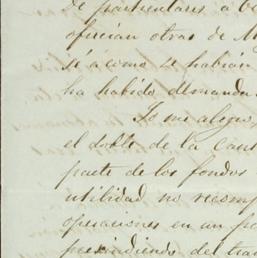 de particulares á
ofrecian otras de M
sé á como se habian
ha habido demanda
Yo me alegro,
el doble de la cant
parte de los fondos
utilidad no recomp
operaciones en un pe
prescindiendo del tra